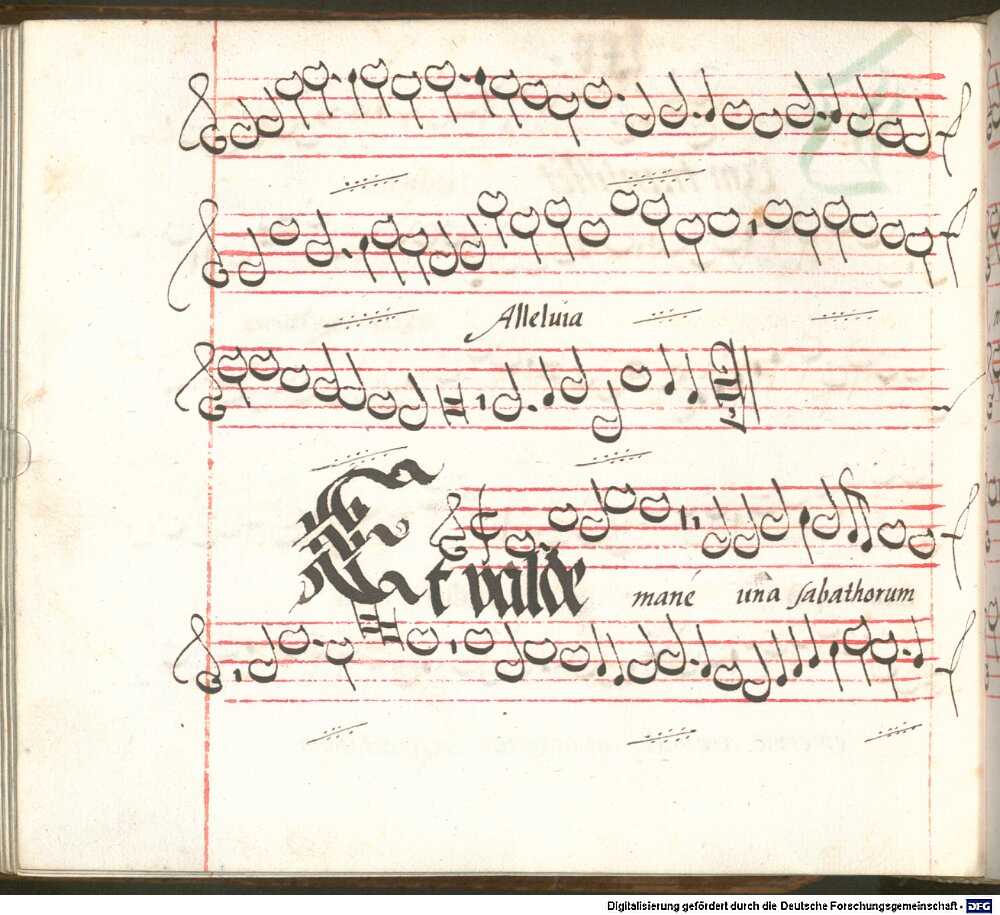 Alleluia
Et valde mane una sabathorum
Digitalisierung gefördert durch die Deutsche Forschungsgemeinschaft - DFG